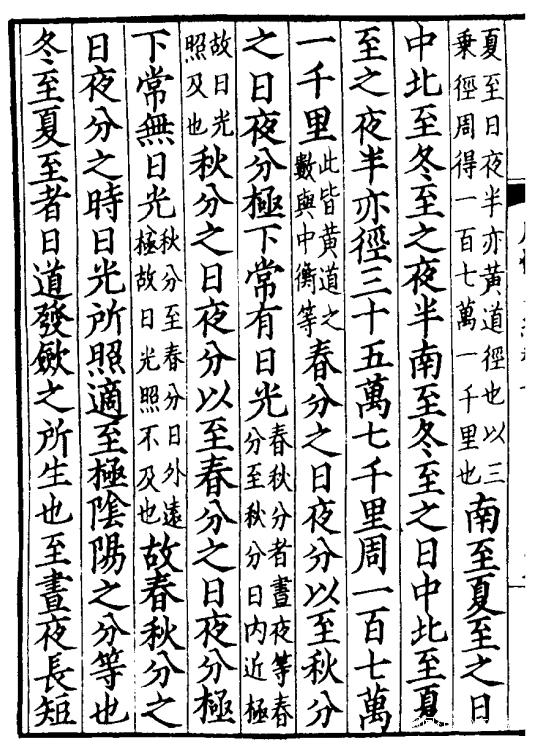 夏至日夜半亦黃道徑也以三
乘徑周得一百七萬一千里也
南至夏至之日
中北至冬至之夜半南至冬至之日中北至夏
至之夜半亦徑三十五萬七千里周一百七萬
一千里
此皆黃道之
數與中衡等
春分之日夜分以至秋分
之日夜分極下常有日光
春秋分者晝夜等春
分至秋分日內近極
故日光
照及也
秋分之日夜分以至春分之日夜分極
下常無日光
秋分至春分日外遠
極故日光照不及也
故春秋分之
日夜分之時日光所照適至極陰陽之分等也
冬至夏至者日道發斂之所生也至晝夜長短